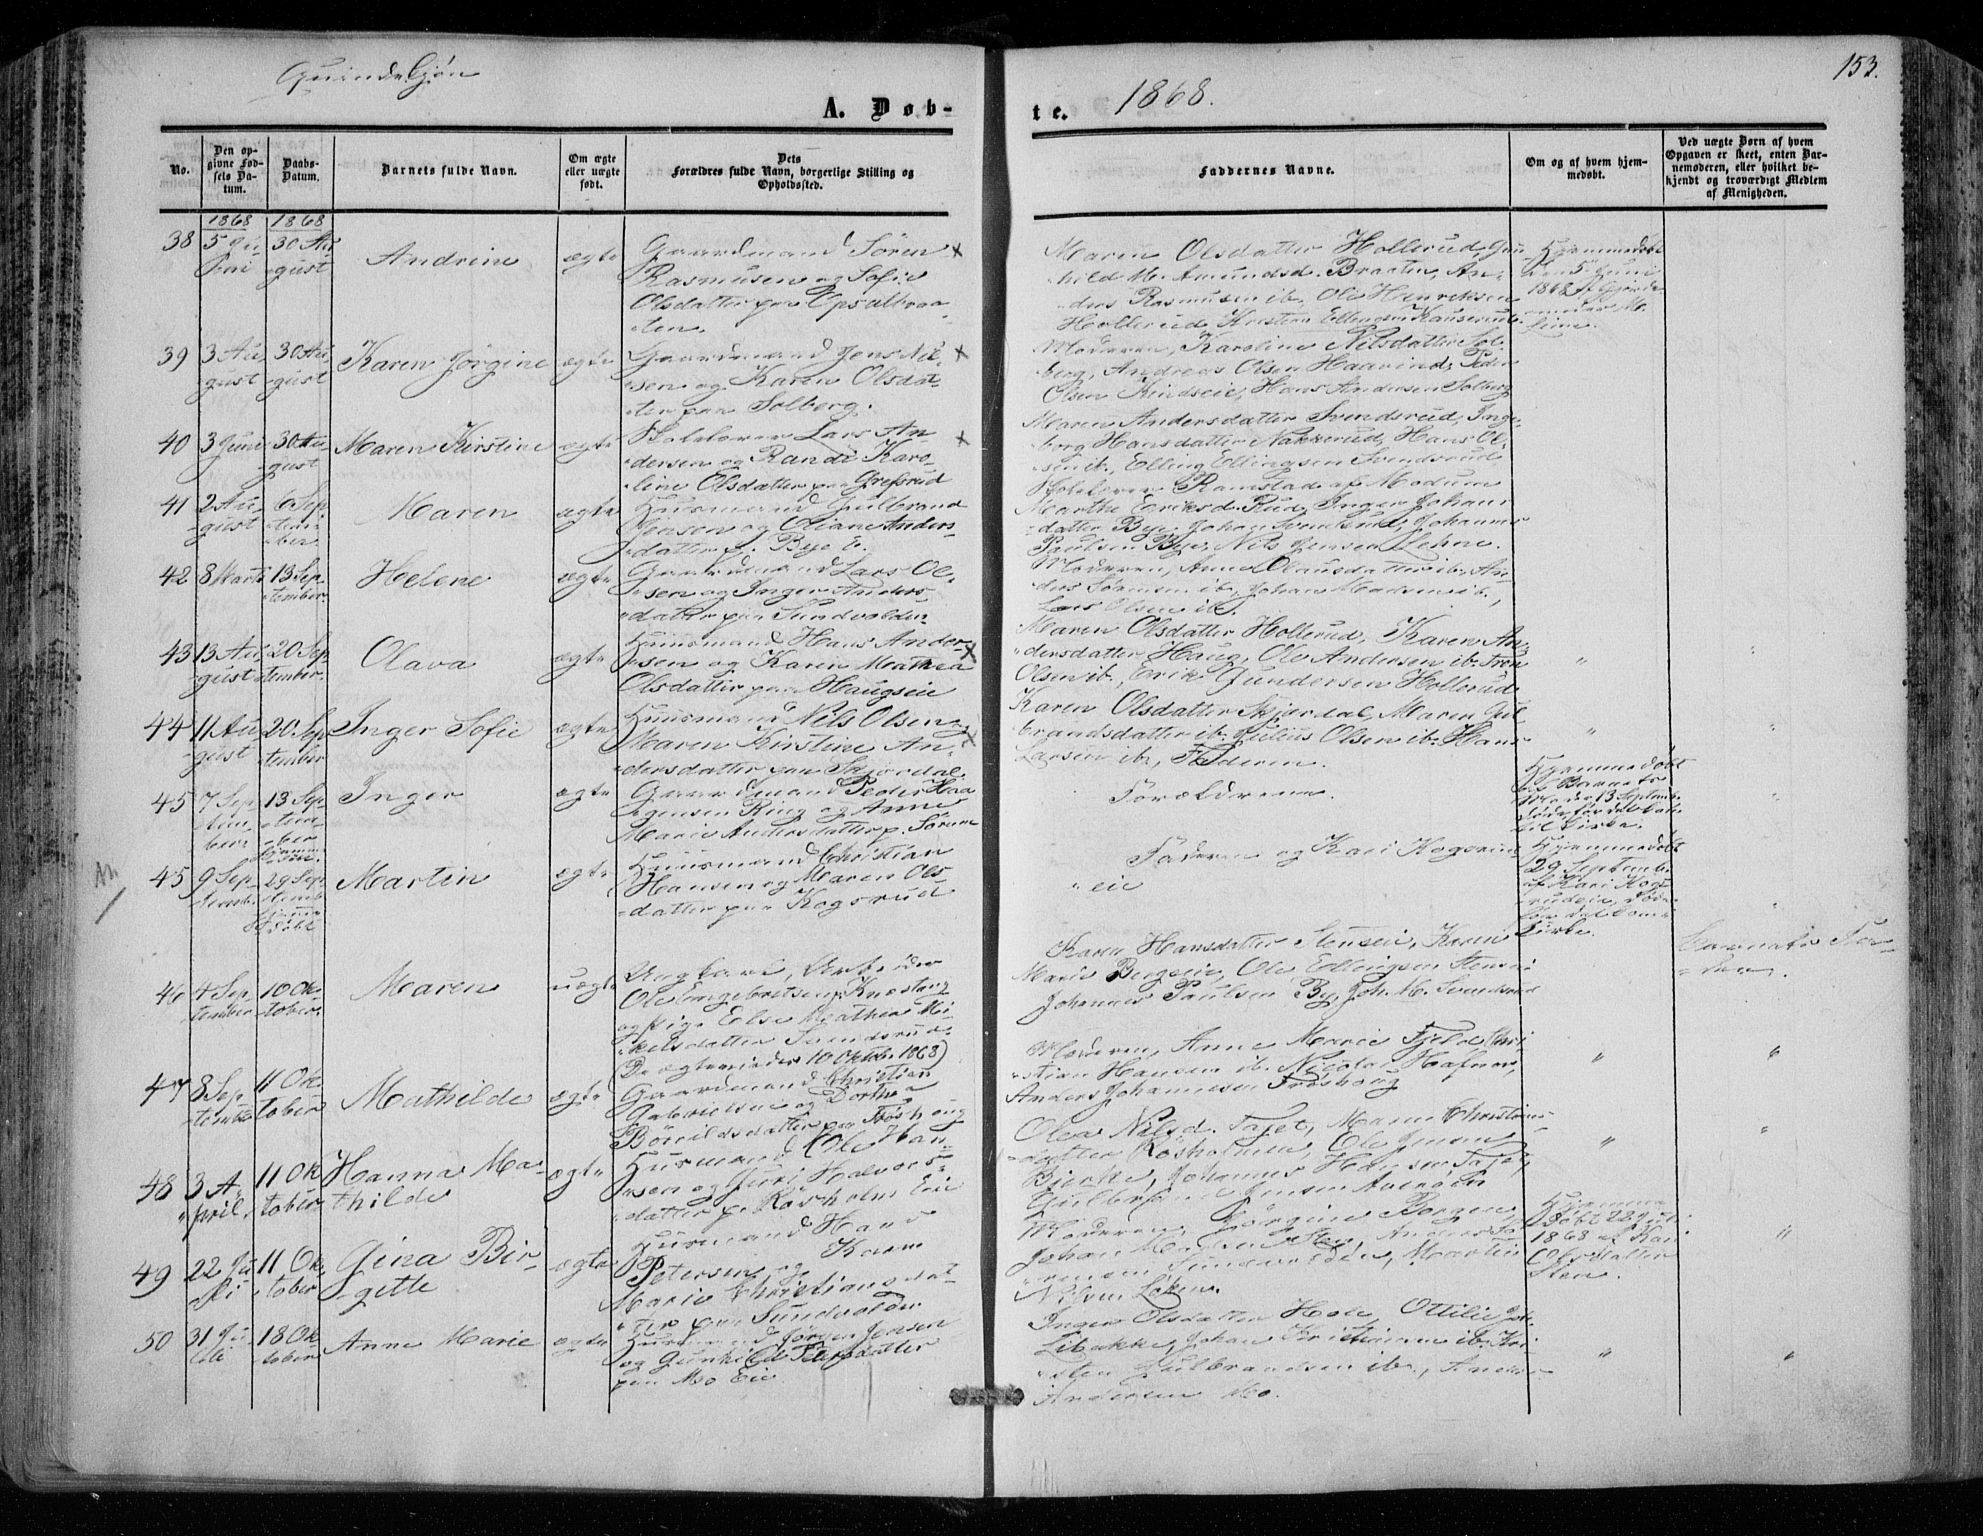 Quindekjøn
A. Døb-
te.
1868.
153.
No.
Den op-
givne Fød-
sels Da-
tum.
Daabs-
Datum.
Barnets fulde Navn.
Om ægte
eller uægte
født.
Dets
Forældres fulde Navn, borgerlige Stilling og
Opholdssted.
Faddernes Navne.
Om og af hvem hjem-
medøbt.
Ved uægte Børn af hvem
Opgaven er skeet, enten Bar-
nemoderen, eller hvilket be-
kjendt og troværdigt Medlem
af Menigheden.
1868
1868
38
5 Ju
30 Au
gust
Andrine
ægte
Gaardmand Søren
Rasmusen og Sofie
Olsdatter paa Opsalbraa-
ten.
Maren Olsdatter Hollerud, Gun
hild M. Amundsd. Braaten, An-
ders Rasmusen ib., Ole Henriksen
Hollerud, Kristian Ellingsen
Hjemmedøbt
den 5 Juni
1868
39
3 Au
gust
30 Au
gust
Karen Jørgine
ægte
Gaardmand Jens Nil-
sen og Karen Olsdat-
ter paa Solberg.
Moderen, Karoline Nilsdatter Sol-
berg, Andreas Olsen Haarind, Peder
Olsen Rindseie, Hans Andersen Solberg
40
3 Juni
30 Au
gust
Maren Kirstine
ægte
Skolelærer Lars An-
dersen og Randi Karo-
line Olsdatter paa Grefsrud
Maren Andersdatter Svendsrud, Inge-
borg Hansdatter Nakkerud, Hans Ol-
sen ib., Elling Ellingsen Svendsrud
Skolelærer Ramstad af Modum
41
2 Au
gust
6 Sep
tem
ber
Maren
ægte
Huusmand Gulbrand
Jensen og Oliane Anders-
datter p. Bye E.
Marthe Eriksd. Rud, Inger Johann
datter Bye, Johan Svendsrud, Johannes
Paulsen Bye, Nils Jensen Lehne.
42
8 Marts
13 Sep
tember
Helene
ægte
Gaardmand Lars Ol-
sen og Inger Anders-
datter paa Sundvolden
Moderen, Anne Olausdatter ib., An-
ders Sørensen ib., Johan Madsen ib.,
Lars Olsen ib.
43
13 Au
gust
20 Sep
tember
Olava
ægte
Huusmand Hans Ander-
sen og Karen Mathea
Olsdatter paa Haugseie
Maren Olsdatter Hollerud, Karen An-
dersdatter Haug, Ole Andersen ib. Tron
Olsen ib., Erik Gundersen Hollerud
44
11 Au
gust
20 Sep
tember
Inger Sofie
ægte
Huusmand Nils Olsen
Maren Kirstine An-
dersdatter paa Skjørdal
Karen Olsdatter Skjørdal, Maren Gul
brandsdatter ib. Julius Olsen ib. Hans
Larsen ib., Faderen.
45
7 Sep
tem
ber
13 Sep
tem
ber
Inger
ægte
Gaardmand Peder Haa
gensen Ring og Anne
Marie Andersdatter p. Sørum
Forældrene.
Hjemmedøbt
af Barnets
Moder 13 Septemb.
død før det kom
til Kirke.
45
9 Sep
temb.
29 Sep
temb
Martin
ægte
Huusmand Christian
Hansen og Maren Ols-
datter paa Kogsrud
Faderen og Kari Kogsrud
eie
Hjemmedøbt
29 Septemb.
af Kari Kogs
rudeie, død
før det kom
Kirke.
46
4 Sep
tember
10 Ok
tober
Maren
uægte
Ungkarl, Arbeider
Ole Engebretsen Knestang
og Pige Else Mathea Mi-
kelsdatter Svendsrud
(De ægteviedes 10 Oktob. 1868)
Karen Hansdatter Stenseie, Karen
Marie Bergseie, Ole Ellingsen Stenseie
Johannes Paulsen By, Joh. M. Svendsrud
Barnets Fa-
der.
47
8 Sep
tember
11 Ok
tober
Mathilde
ægte
Gaardmand Christian
Gabrielsen og Dorthea
Bottildsdatter paa Frøshoug
Moderen, Anne Marie Fjeld, Chri
stian Hansen ib. Nicolai Hafnor,
Anders Johannesen Frøshoug
48
3 A
pril
11 Ok
tober
Hanna Ma-
thilde
ægte
Husmand Ole Han-
sen og Guri Halvors-
datter p. Røsholm Eie
Olea Nilsd. Tajet, Maren Christians-
datter Røsholmen, Ole Jensen
Bjerke, Johannes Hansen Tajet,
Gulbrand Jensen Averøen
49
22 Ju
li
11 Ok
tober
Gina Bir-
gitte
ægte
Husmand Hans
Petersen og Karen
Marie Christiansdat-
ter paa Sundvolden
Moderen, Jørgine Borgen,
Johan Madsen Sten, Anders Sø
rensen Sundvolden, Martin
Nilsen Løken.
Hjemme
døbt 22
1868 af Kari
Olsdatter
Sten.
50
31 Ju
li
18 Ok
tober
Anne Marie
ægte
Husmand Jørgen Jensen
og Gunhild Petersdatter
paa Mo Eie
Inger Olsdatter Hole, Ottilie Joh.
Libakke, Johan Kristiansen ib. Kri
sten Gulbrandsen ib., Anders
Andersen Mo.